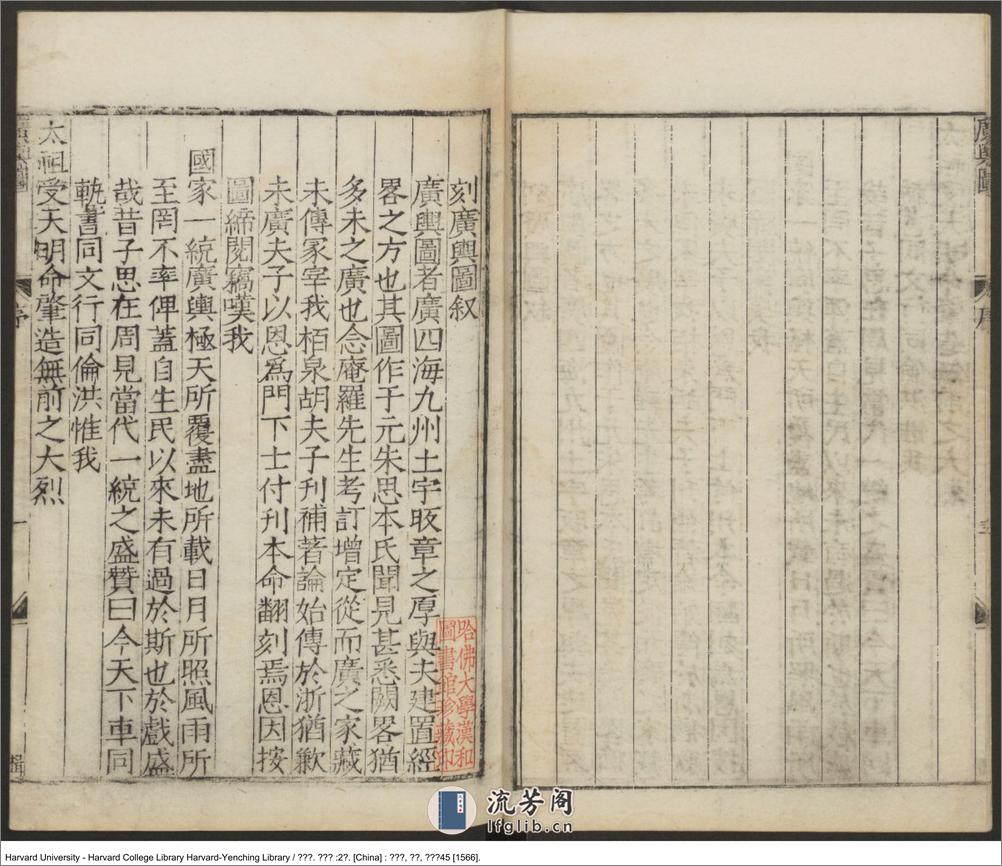 廣輿圖
序
刻廣輿圖叙
廣輿圖者廣四海九州土宇販章之厚與夫建置經
畧之方也其圖作于元朱思本氏聞見甚悉闕畧猶
多未之廣也念庵羅先生考訂增定從而廣之家藏
未傳冡宰我栢泉胡夫子刊補著論始傳於浙猶歉
未廣夫子以恩爲門下士付刊本命翻刻焉恩因按
圖締閱竊嘆我
國家一統廣輿極天所覆盡地所載日月所照風雨所
至罔不率俾蓋自生民以來未有過於斯也於戲盛
哉昔子思在周見當代一統之盛贊曰今天下車同
軌書同文行同倫洪惟我
太祖受天明命肇造無前之大烈
序
一
哈佛大學漢和
圖書館珍藏印
流芳阁
lfglib.cn
Harvard University - Harvard College Library Harvard-Yenching Library / ???. ??? :2?. [China] : ???, ??, ???45 [1566].